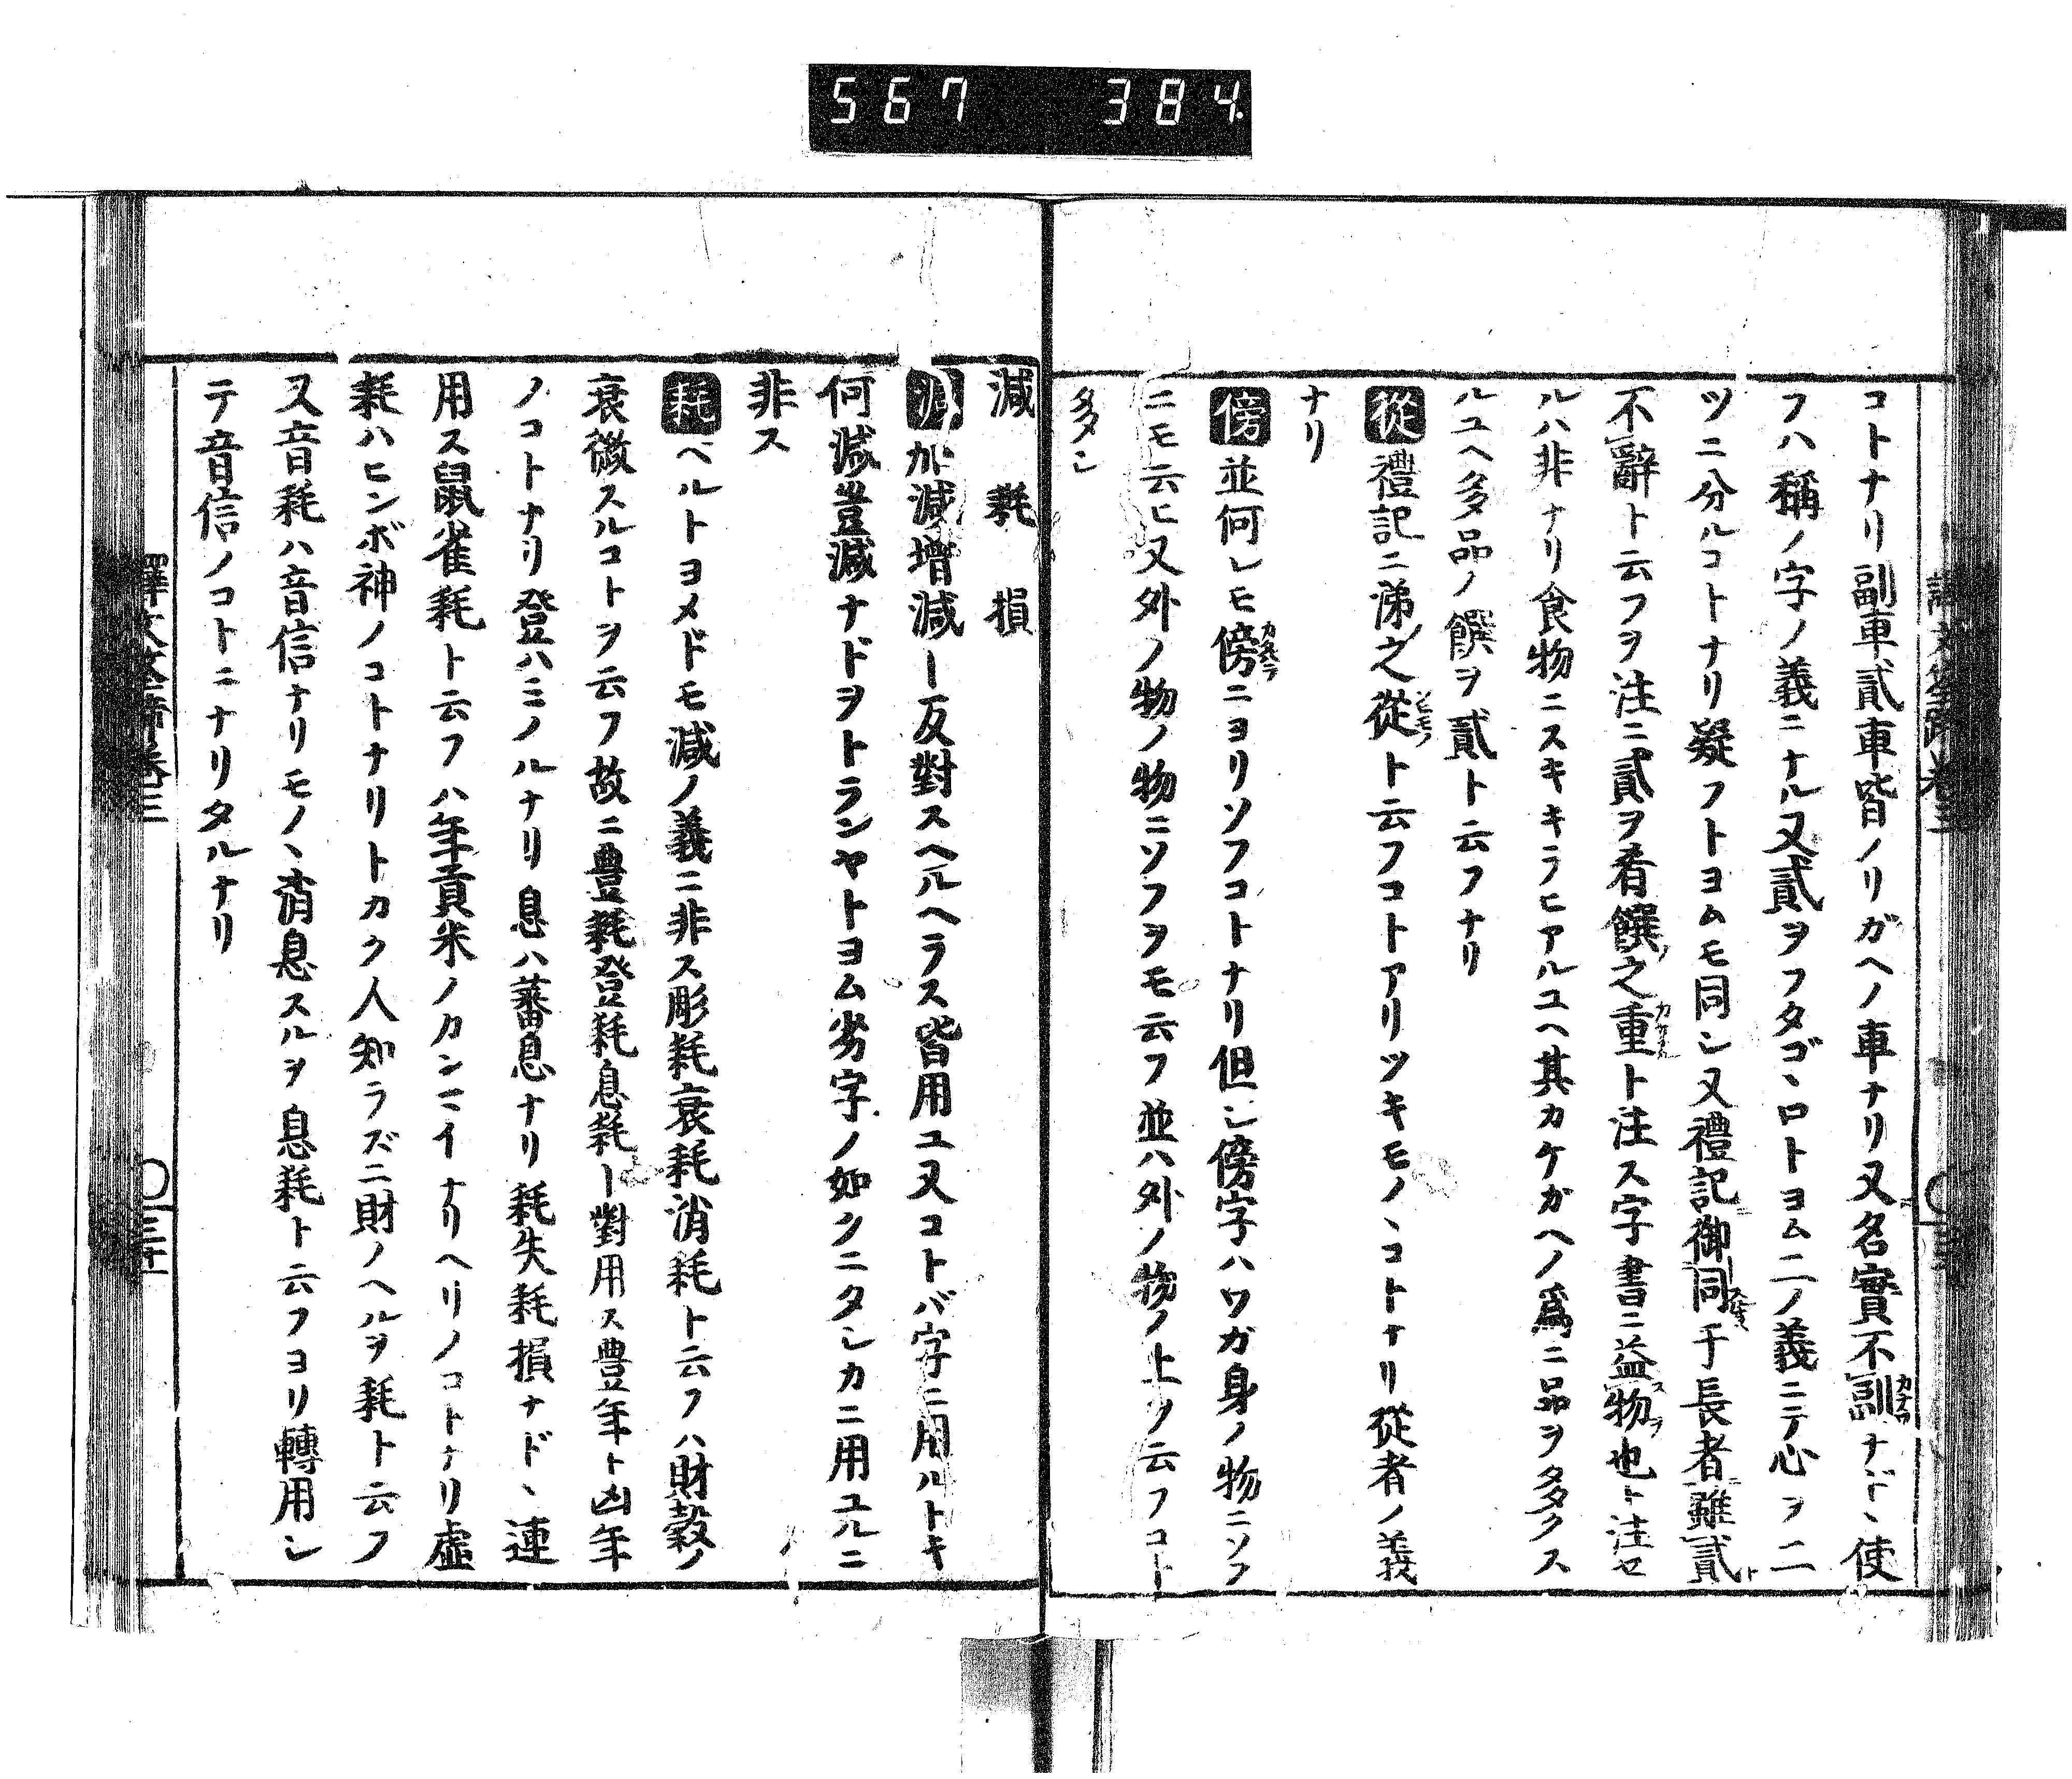 567 384.
コトナリ副車貳車皆ノリガヘノ車ナリ又名實不副ナドヽ使
フハ稱ノ字ノ義ニナル又貳ヲフタゴヽロトヨム二ノ義ニテ心ヲ二
ツニ分ルコトナリ疑フトヨムモ同シ又禮記御同于長者雖貳
不辭ト云フヲ注ニ貳ヲ肴饌之重ト注ス字書ニ益物也ト注セ
ルハ非ナリ食物ニスキキラヒアルユヘ其カケガヘノ爲ニ品ヲ多クス
ルユヘ多品ノ饌ヲ貳ト云フナリ
從禮記ニ涕之從ト云フコトアリツキモノヽコトナリ從者ノ義
ナリ
傍並何レモ傍ニヨリソフコトナリ但シ傍字ハワガ身ノ物ニソフ
ニモ云ヒ又外ノ物ノ物ニソフヲモ云フ並ハ外ノ物ノ上ヲ云フコト
多シ
減 耗 損
減加減增減ー反對スヘルヘラス皆用ユ又コトバ字ニ用ルトキ
何減豈減ナドヲトランヤトヨム劣字ノ如クニタシカニ用ユルニ
非ス
耗ヘルトヨメドモ減ノ義ニ非ス彫耗衰耗消耗ト云フハ財穀ノ
衰微スルコトヲ云フ故ニ豊耗登耗息耗ー對用ス豊年ト凶年
ノコトナリ登ハミノルナリ息ハ蕃息ナリ耗失耗損ナドヽ連
用ス鼠雀耗ト云フハ年貢米ノカンマイナリヘリノコトナリ虛
耗ハヒンボ神ノコトナリトカク人知ラズニ財ノヘルヲ耗ト云フ
又音耗ハ音信ナリモノヽ消息スルヲ息耗ト云フヨリ轉用シ
テ音信ノコトニナリタルナリ